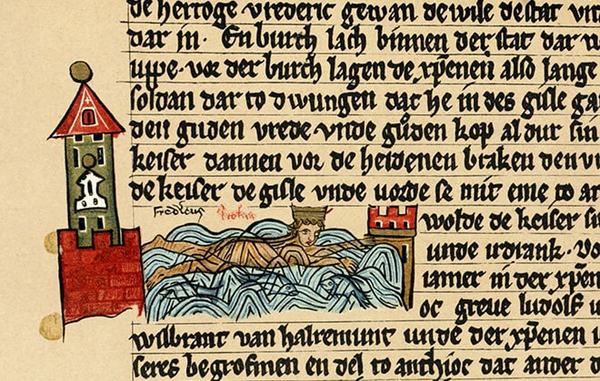 de hertoge vrederic gewan dewile de stat vn
dar in. En burch lach binnen der stat dar
uppe. vor der burch lagen de xp̄enen also lange
soldan dar to dwungen dat he in des gisle ga
den guden vrede. vnde guͦden kop al dur sin
keiser dannen vor de heidenen braken den
de keiser de gisle vnde uorde se mit eme to ar
fredicus
wolde de keiser
unde irdrank. Vo
iamer in der xp̄en
oc greve ludolf
wilbrant van halremunt unde der xp̄enen
seres begrofmen en del to anthioc dat ander d